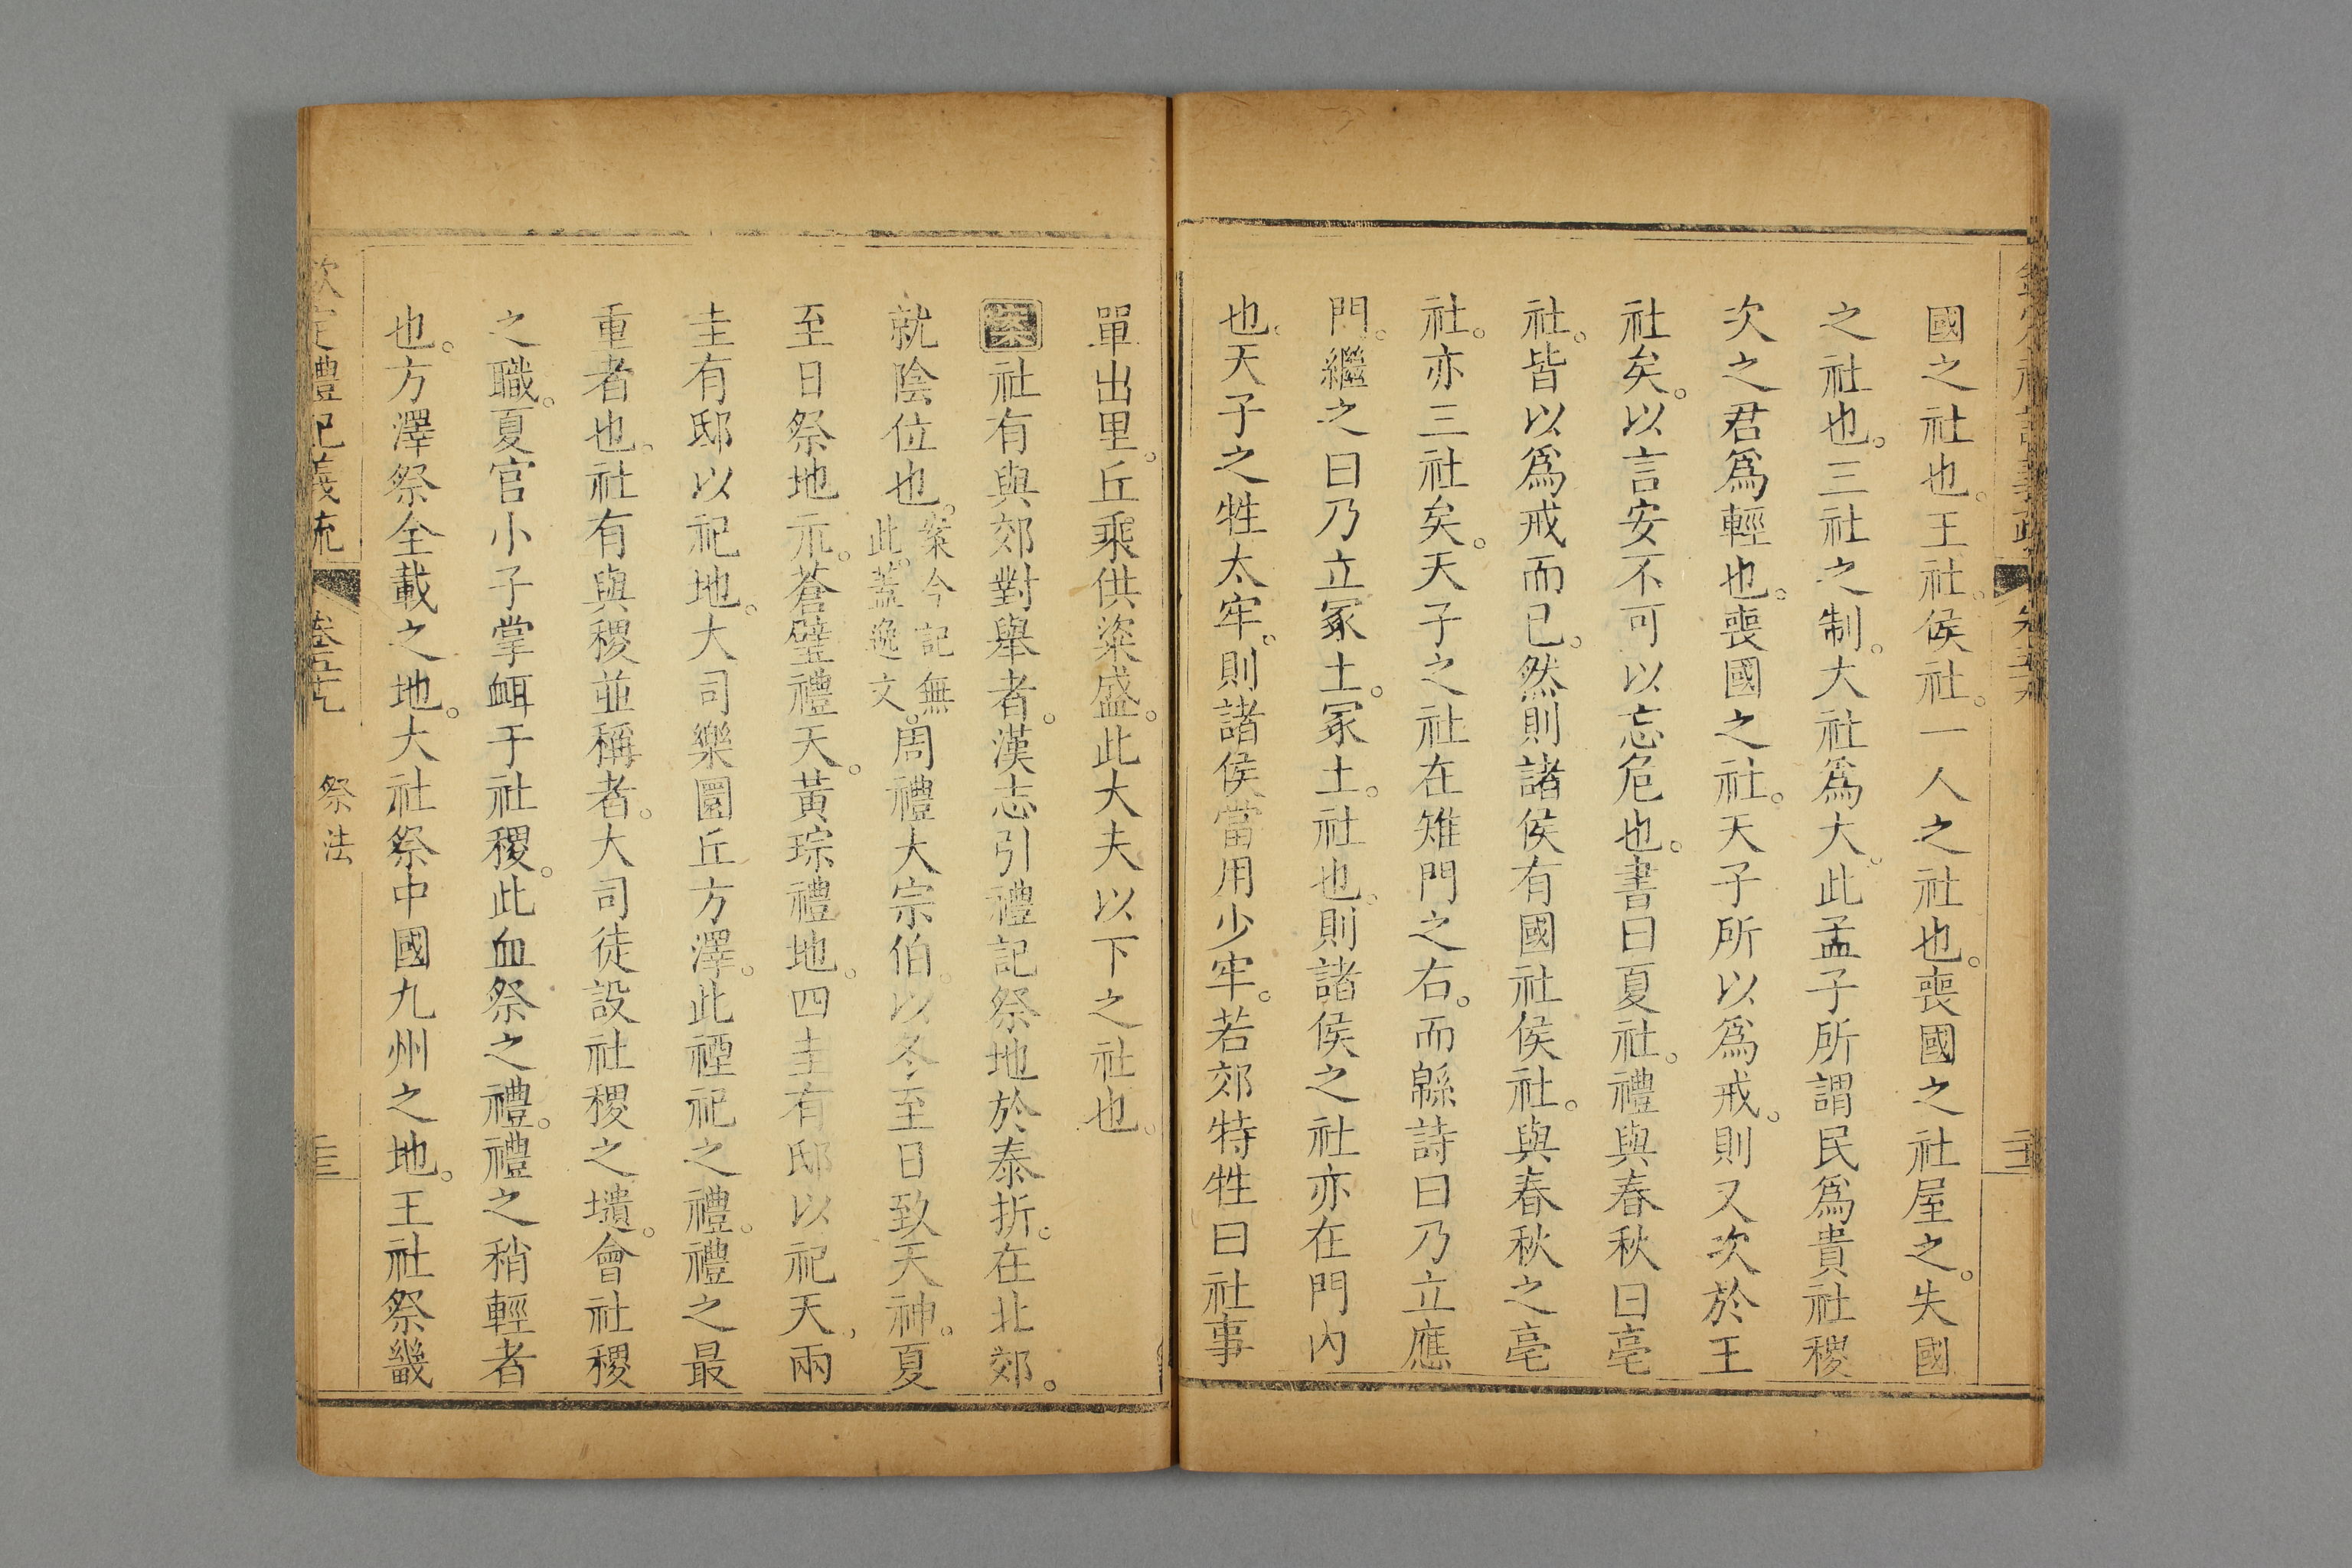 國之社也。王社。侯社。一人之社也。喪國之社屋之。失國
之社也。三社之制。大社爲大。此孟子所謂民爲貴社稷
次之君爲輕也。喪國之社。天子所以爲戒。則又次於王
社矣。以言安不可以忘危也。書曰夏社。禮與春秋曰亳
社。皆以爲戒而已。然則諸侯有國社侯社。與春秋之亳
社。亦三社矣。天子之社在雉門之右。而緜詩曰乃立應
門。繼之曰乃立冢土。冢土。社也。則諸侯之社亦在門內
也。天子之牲太牢。則諸侯當用少牢。若郊特牲曰社事
單出里。丘乘供粢盛。此大夫以下之社也。
案社有與郊對舉者。漢志引禮記祭地於泰折。在北郊。
就陰位也。案今記無此。蓋逸文。周禮大宗伯。以冬至日致天神。夏
至日祭地示。蒼璧禮天。黃琮禮地。四圭有邸以祀天。兩
圭有邸以祀地。大司樂圜丘方澤。此禋祀之禮。禮之最
重者也。社有與稷並稱者。大司徒設社稷之壝。會社稷
之職。夏官小子掌衈于社稷。此血祭之禮。禮之稍輕者
也。方澤祭全載之地。大社祭中國九州之地。王社祭畿
欽定禮記義疏 卷五十九 祭法